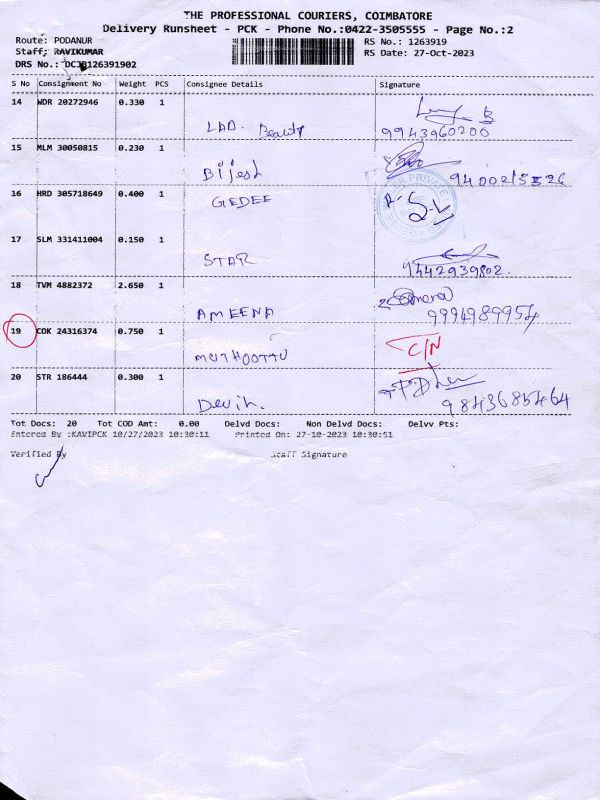 THE PROFESSIONAL COURIERS, COIMBATORE
Delivery Runsheet - PCK - Phone No.:0422-3505555 - Page No.:2
Route: PODANUR RS No.: 1263919
Staff: RAVIKUMAR RS Date: 27-Oct-2023
DRS No.:
S No Consignment No Weight PCS Consignee Details Signature
14 WDR 20272946 0.330 1
Beauty 9943960200
15 MLM 30050815 0.230 1
Bijesh
16 HRD 305718649 0.400 1
GEDEE
PRIVATE
17 SLM 331411004 0.150 1
STAR 9442939802.
18 TVM 4882372 2.650 1
AMEENA 9994989954
19 COK 24316374 0.750 1
MUTHOOTTU C/N
20 STR 186444 0.300 1
9843685464
Tot Docs: 20 Tot COD Amt: 0.00 Delvd Docs: Non Delvd Docs: Delvv Pts:
Entered By :KAVIPCK 10/27/2023 10:30:11 Printed On: 27-10-2023 10:30:51
Verified By Staff Signature